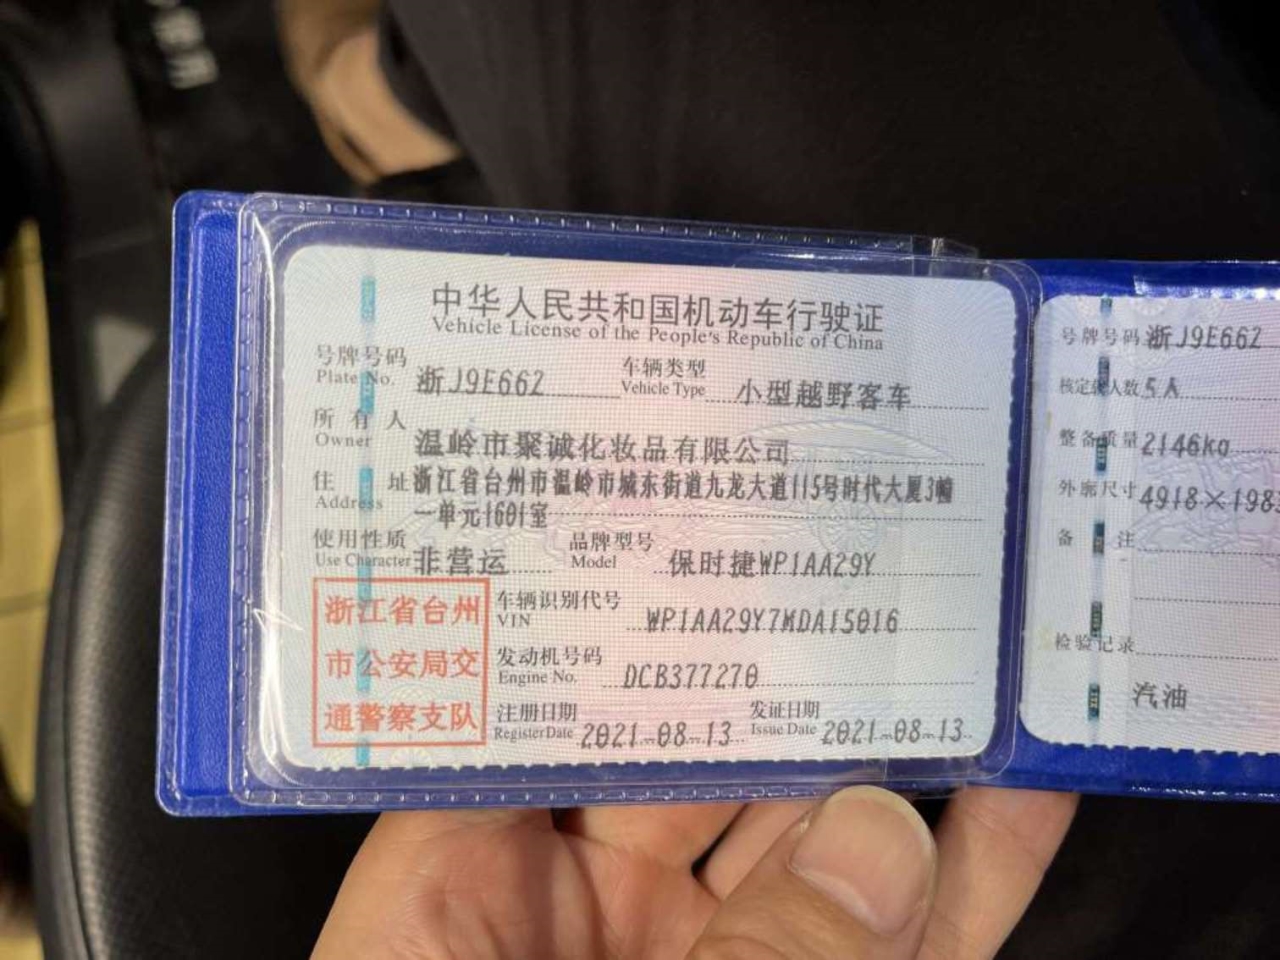 中华人民共和国机动车行驶证
Vehicle License of the People's Republic of China
号牌号码 浙J9E662 车辆类型 小型越野客车
Plate No. Vehicle Type
所有人 温岭市聚诚化妆品有限公司
Owner
住址 浙江省台州市温岭市城东街道九龙大道115号时代大厦3幢
Address 一单元1601室
使用性质 非营运 品牌型号 保时捷WP1AA29Y
Use Character Model
浙江省台州
市公安局交
通警察支队
车辆识别代号 WP1AA29Y7MDA15016
VIN
发动机号码 DCB377270
Engine No.
注册日期 2021-08-13 发证日期 2021-08-13
Register Date Issue Date
号牌号码 浙J9E662
核定载人数 5人
整备质量 2146kg
外廓尺寸 4918×198
备注
检验记录
汽油